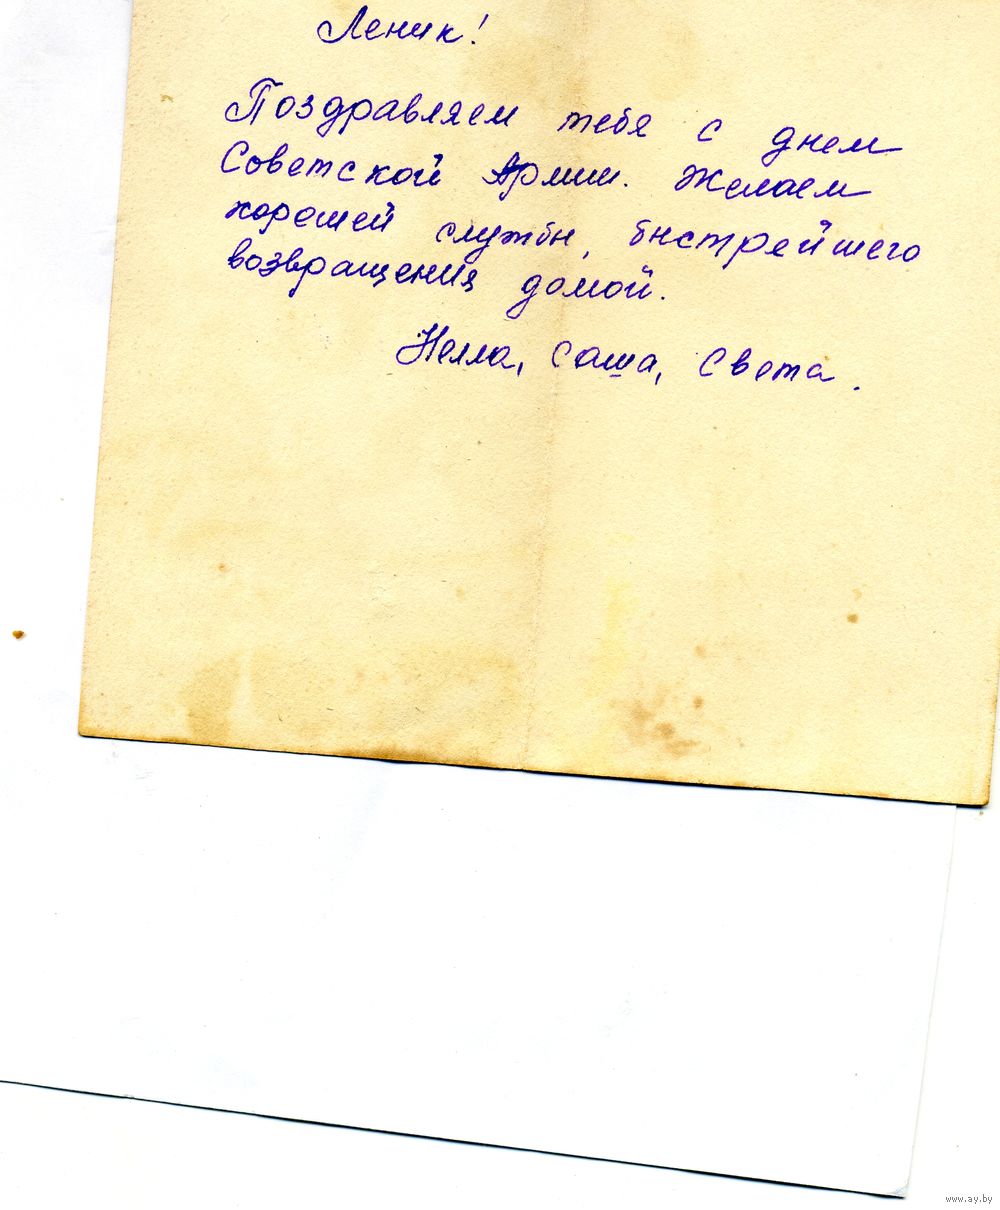 Леник!
Поздравляем тебя с днем
Советской Армии. Желаем
хорошей службы, быстрейшего
возвращения домой.
Нелла, Саша, Света.
www.ay.by